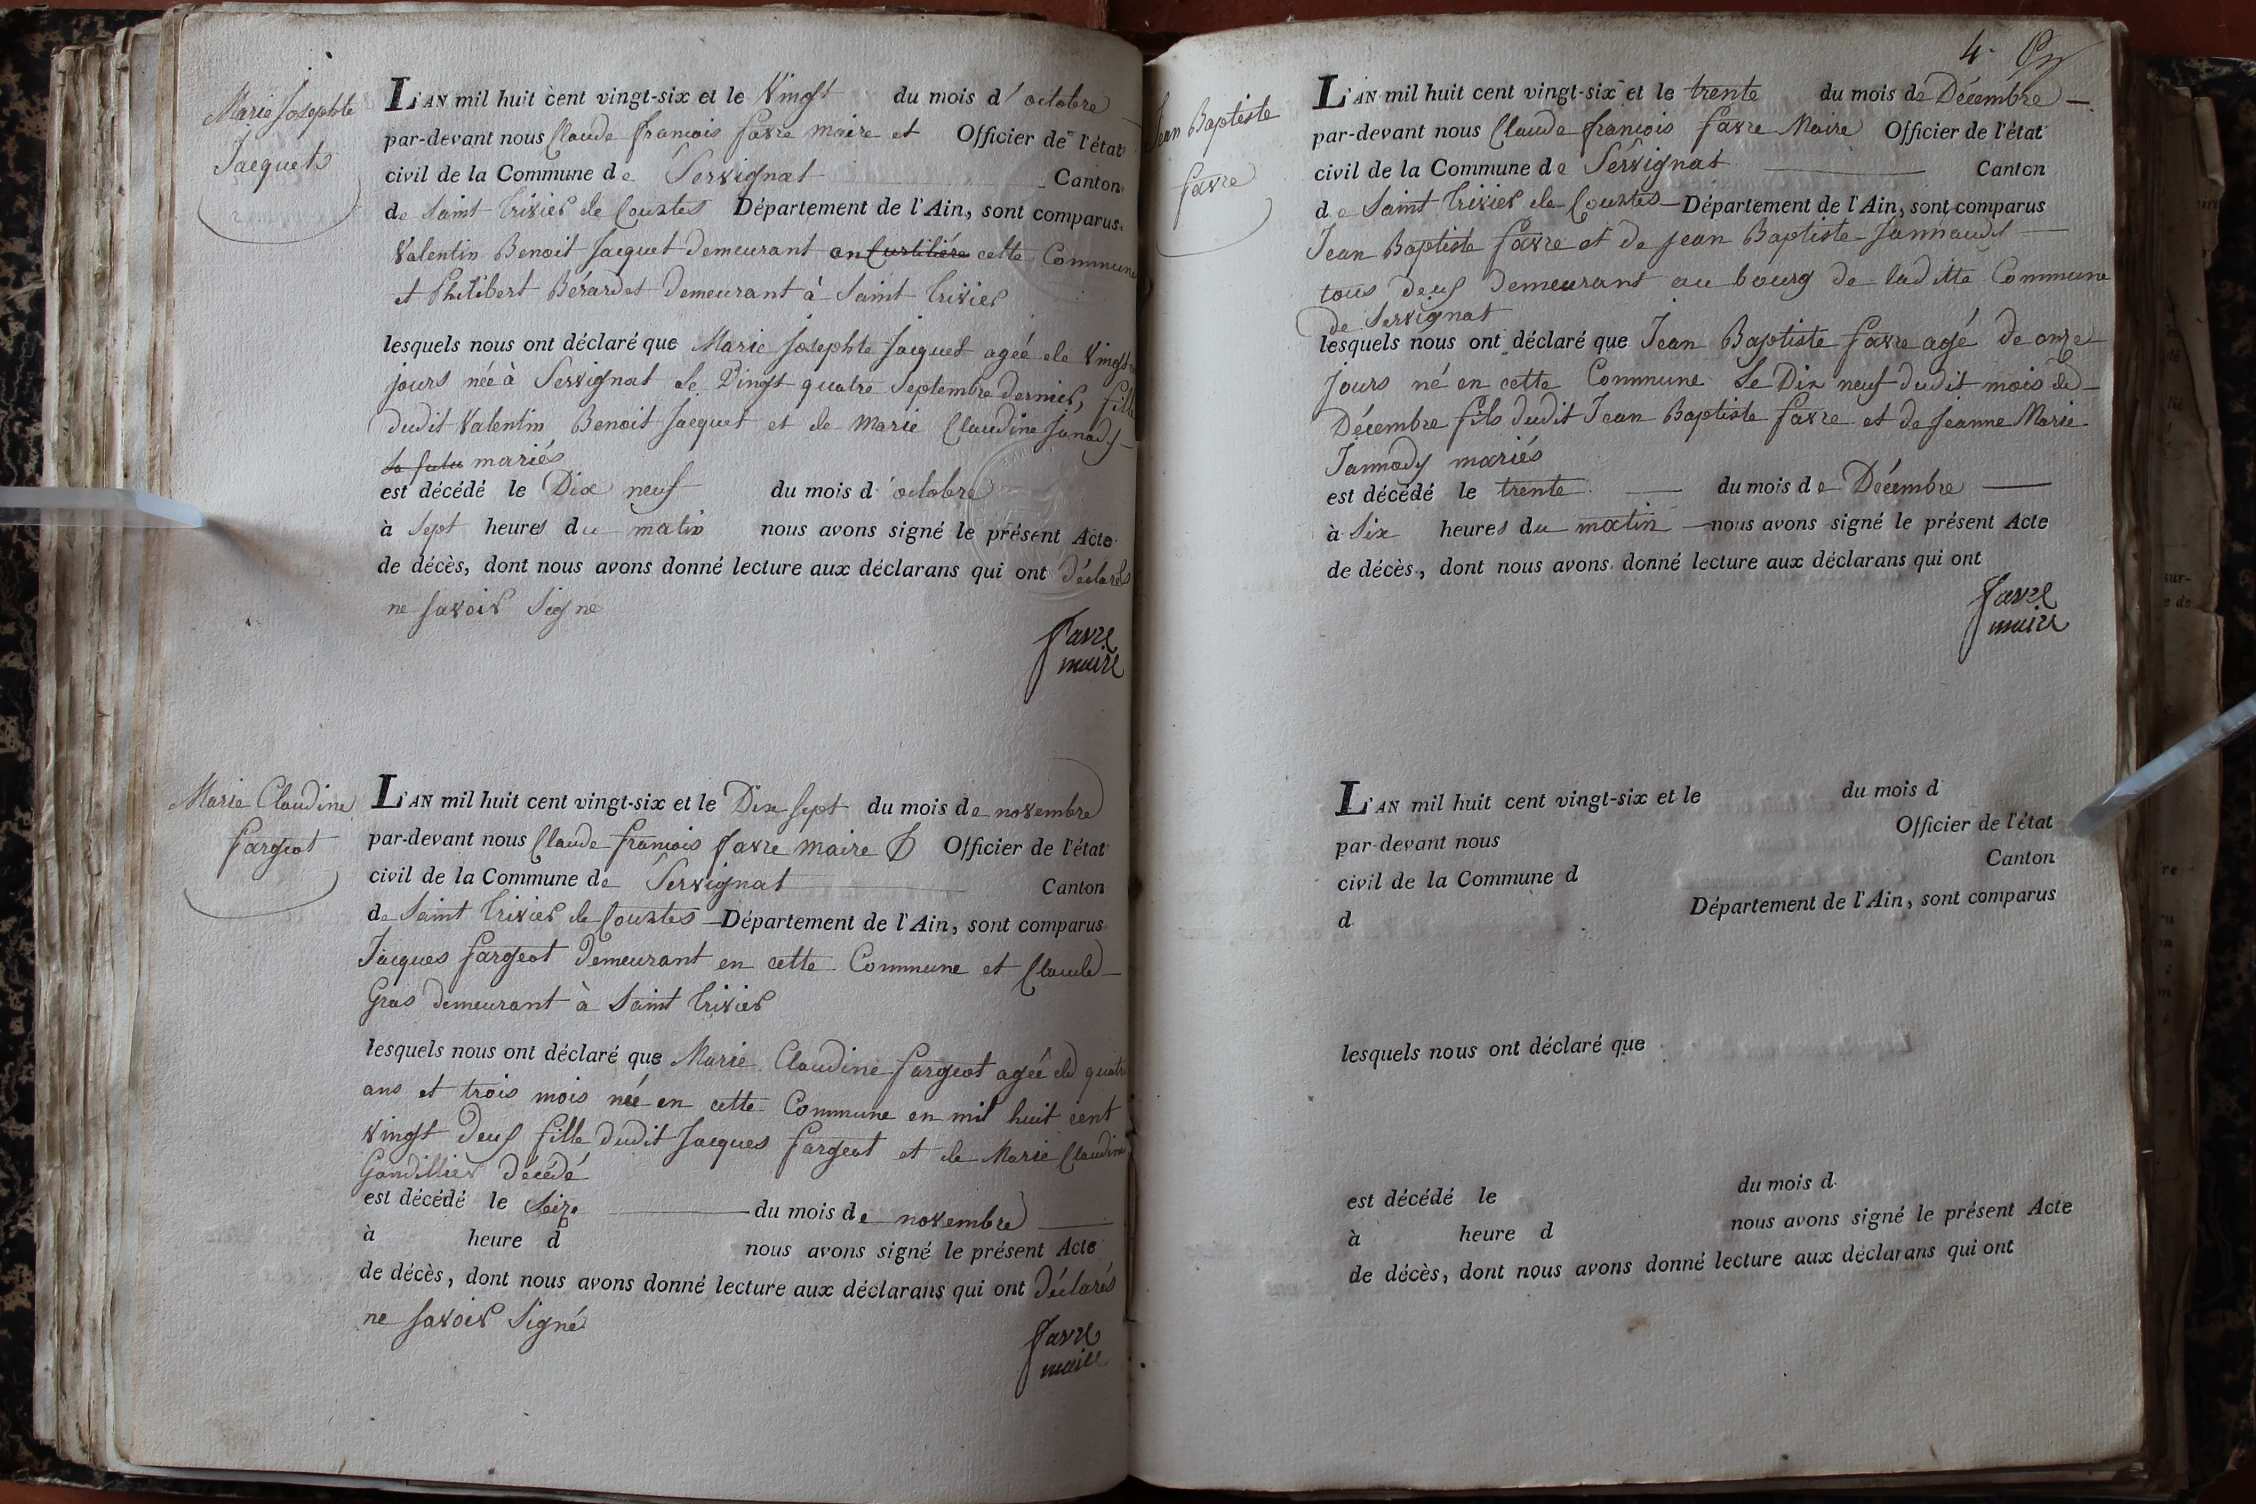 Marie Josephte
Jacquet
L'AN mil huit cent vingt-six et le Vingt du mois d'octobre
par-devant nous Claude françois favre maire et Officier de l'état
civil de la Commune de Servignat Canton
de Saint Trivier de Courtes Département de l'Ain, sont comparus
Valentin Benoit Jacquet demeurant en Curtilière cette Commune
et Philibert Bérardet demeurant à Saint Trivier
lesquels nous ont déclaré que Marie Josephte Jacquet ageé de Vingt
jours née à Servignat le Vingt quatre Septembre dernier, fille
dudit Valentin Benoit Jacquet et de Marie Claudine
mariés
est décédé le Dix neuf du mois d'octobre
à Sept heures du matin nous avons signé le présent Acte
de décès, dont nous avons donné lecture aux déclarans qui ont déclarés
ne savoir Signé
favre
maire
Marie Claudine
fargeot
L'AN mil huit cent vingt-six et le Dix Sept du mois de novembre
par-devant nous Claude françois favre maire Officier de l'état
civil de la Commune de Servignat Canton
de Saint Trivier de Courtes Département de l'Ain, sont comparus
Jacques fargeot demeurant en cette Commune et Claude
Gras demeurant à Saint Trivier
lesquels nous ont déclaré que Marie Claudine fargeot ageé de quatre
ans et trois mois née en cette Commune en mil huit cent
vingt deux fille dudit Jacques fargeot et de Marie Claudine
Gandillier décédé
est décédé le Seize du mois de novembre
à heure d nous avons signé le présent Acte
de décès, dont nous avons donné lecture aux déclarans qui ont déclarés
ne savoir Signé
favre
maire
4.
Jean Baptiste
favre
L'AN mil huit cent vingt-six et le trente du mois de Décembre
par-devant nous Claude françois favre Maire Officier de l'état
civil de la Commune de Servignat Canton
de Saint Trivier de Courtes Département de l'Ain, sont comparus
Jean Baptiste favre et de Jean Baptiste Jannaudy
tous deux demeurant au bourg de laditte Commune
de Servignat
lesquels nous ont déclaré que Jean Baptiste favre agé de onze
Jours né en cette Commune le Dix neuf dudit mois de
Décembre fils dudit Jean Baptiste favre et de Jeanne Marie
Jannody mariés
est décédé le trente du mois de Décembre
à Six heures du matin nous avons signé le présent Acte
de décès, dont nous avons donné lecture aux déclarans qui ont
favre
maire
L'AN mil huit cent vingt-six et le du mois d
par-devant nous Officier de l'état
civil de la Commune d Canton
d Département de l'Ain, sont comparus
lesquels nous ont déclaré que
est décédé le du mois d
à heure d nous avons signé le présent Acte
de décès, dont nous avons donné lecture aux déclarans qui ont